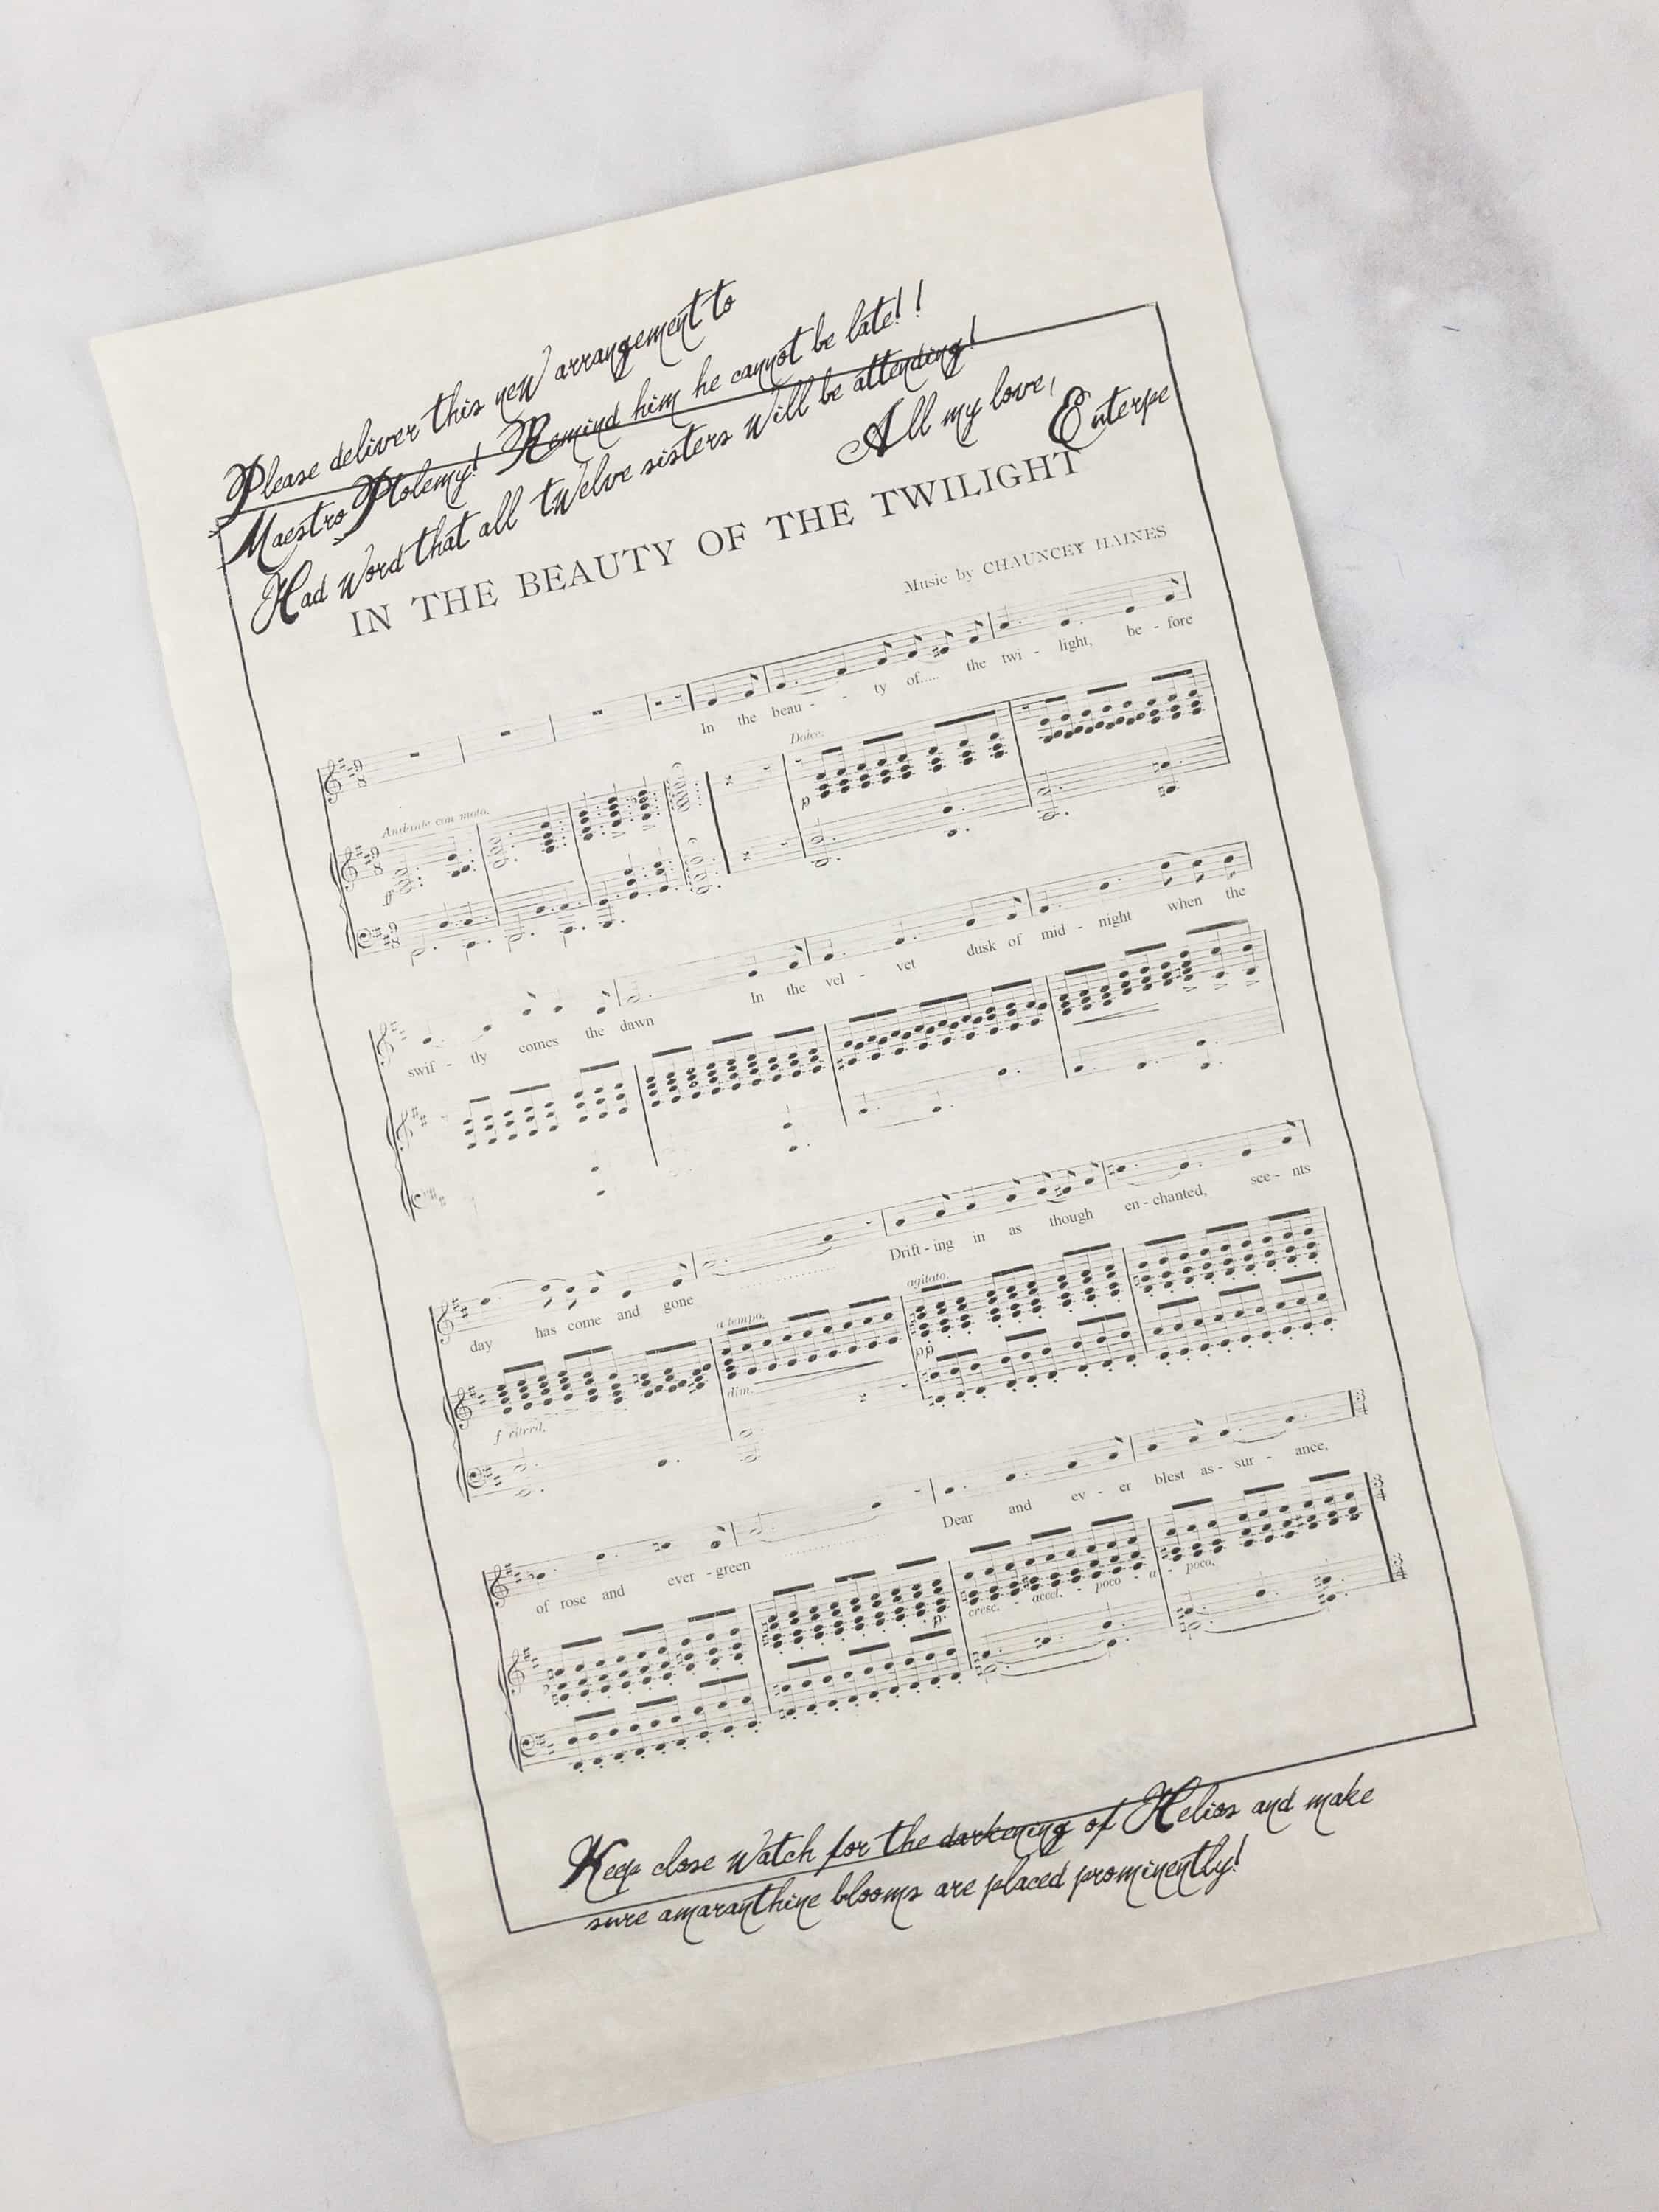 Please deliver this new arrangement to
Maestro Ptolemy! Remind him he cannot be late!!
Had word that all twelve sisters will be attending!
All my love,
Euterpe
IN THE BEAUTY OF THE TWILIGHT
Music by CHAUNCEY HAINES
In the beau - - ty of..... the twi - light, be - fore
Andante con moto.
Dolce.
p
swif - tly comes the dawn In the vel - vet dusk of mid - night when the
day has come and gone ............... Drift - ing in as though en - chanted, sce - nts
a tempo. agitato.
f ritard. dim. pp
of rose and ever - green ............... Dear and ev - er blest as - sur - ance,
p. cresc. - accel. - poco - a - poco,
Keep close watch for the darkening of Helios and make
sure amaranthine blooms are placed prominently!